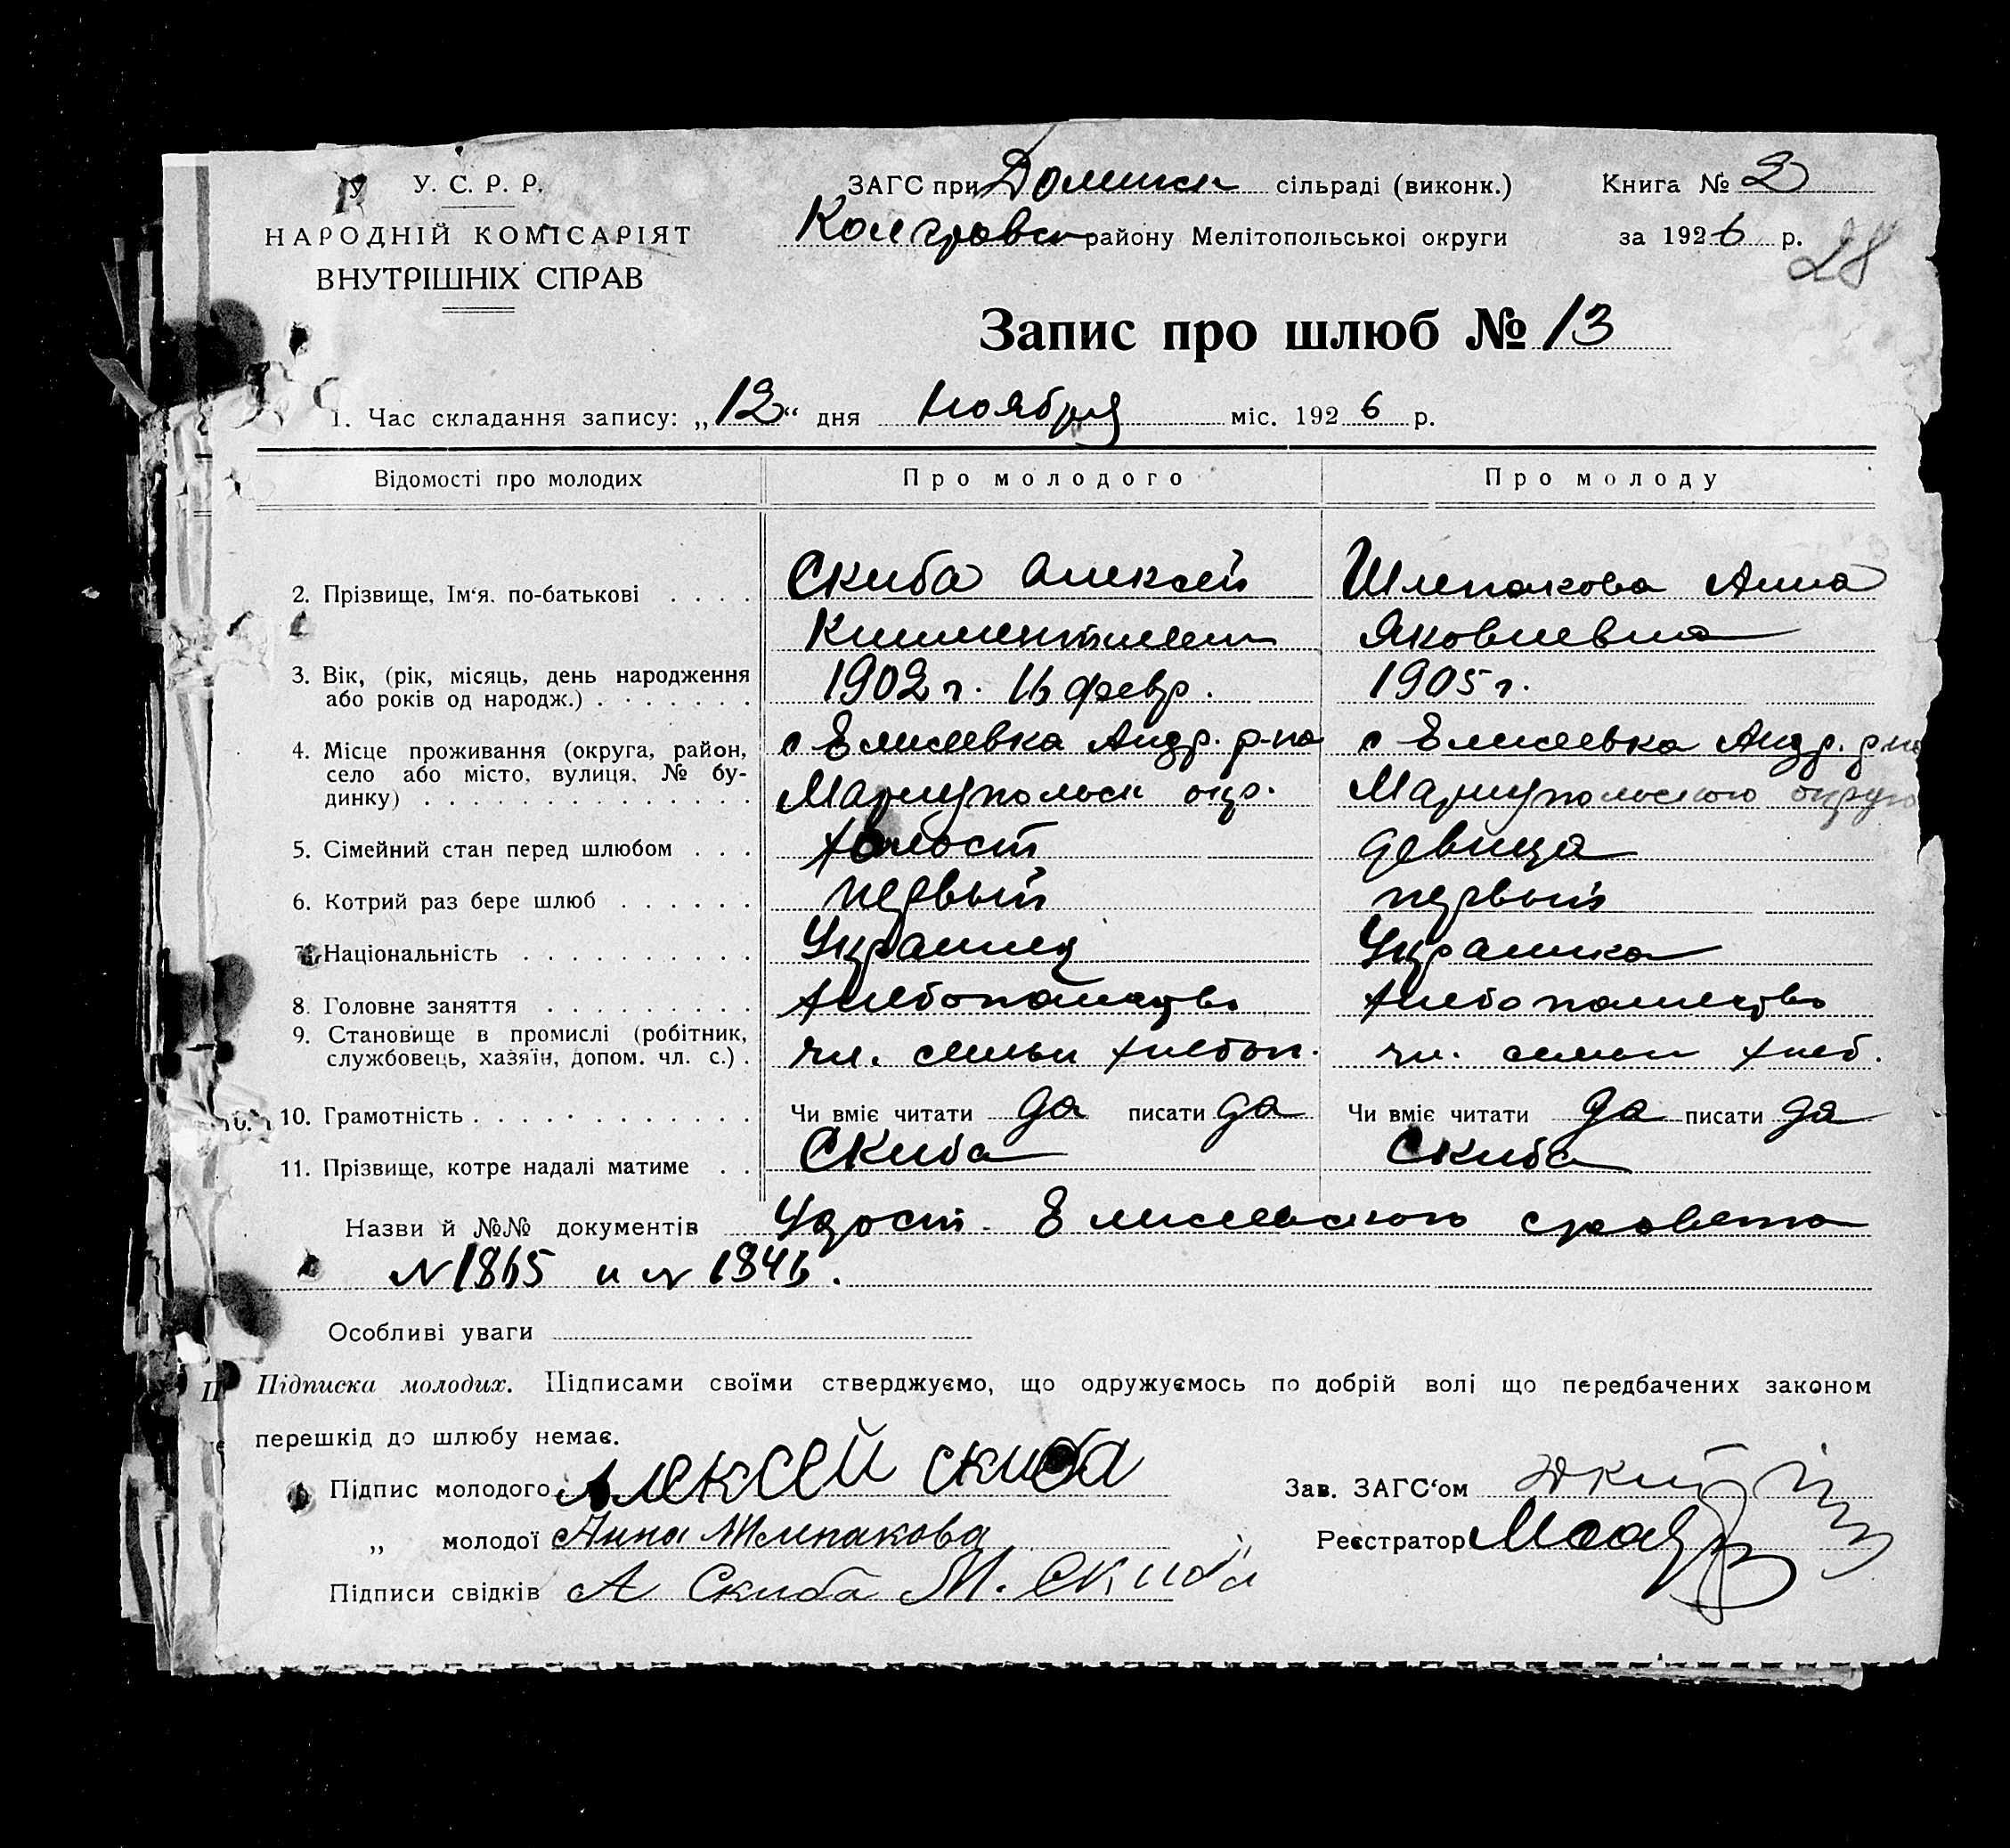 У. С. Р. Р.
НАРОДНІЙ КОМІСАРІЯТ
ВНУТРІШНІХ СПРАВ
ЗАГС при сільраді (виконк.)
району Мелітопольської округи
Книга № 2
за 1926 р.
28
Запис про шлюб № 13
1. Час складання запису: „12“ дня ноября міс. 1926 р.
Відомості про молодих Про молодого Про молоду
2. Прізвище, Ім‘я, по-батькові Скиба Алексей Шлепакова Анна
Яковлевна
3. Вік, (рік, місяць, день народження 1902 г. февр. 1905 г.
або років од народж.)
4. Місце проживання (округа, район, с Елисеевка Андр. р-на с Елисеевка Андр. р-на
село або місто, вулиця, № бу- Мариупольск окр. Мариупольского округа
динку)
5. Сімейний стан перед шлюбом холост девица
6. Котрий раз бере шлюб первый первый
7. Національність Украинец Украинка
8. Головне заняття хлебопашество хлебопашество
9. Становище в промислі (робітник,
службовець, хазяїн, допом. чл. с.) чл. семьи хлебоп. чл. семьи хлеб.
10. Грамотність Чи вміє читати да писати да Чи вміє читати да писати да
11. Прізвище, котре надалі матиме Скиба Скиба
Назви й №№ документів Удост. Елисеевского с/совета
Особливі уваги
II Підписка молодих. Підписами своїми стверджуємо, що одружуємось по добрій волі що передбачених законом
перешкід до шлюбу немає.
Підпис молодого Алексей Скиба Зав. ЗАГС‘ом
„ молодої Анна Реєстратор
Підписи свідків А Скиба М. Скиба